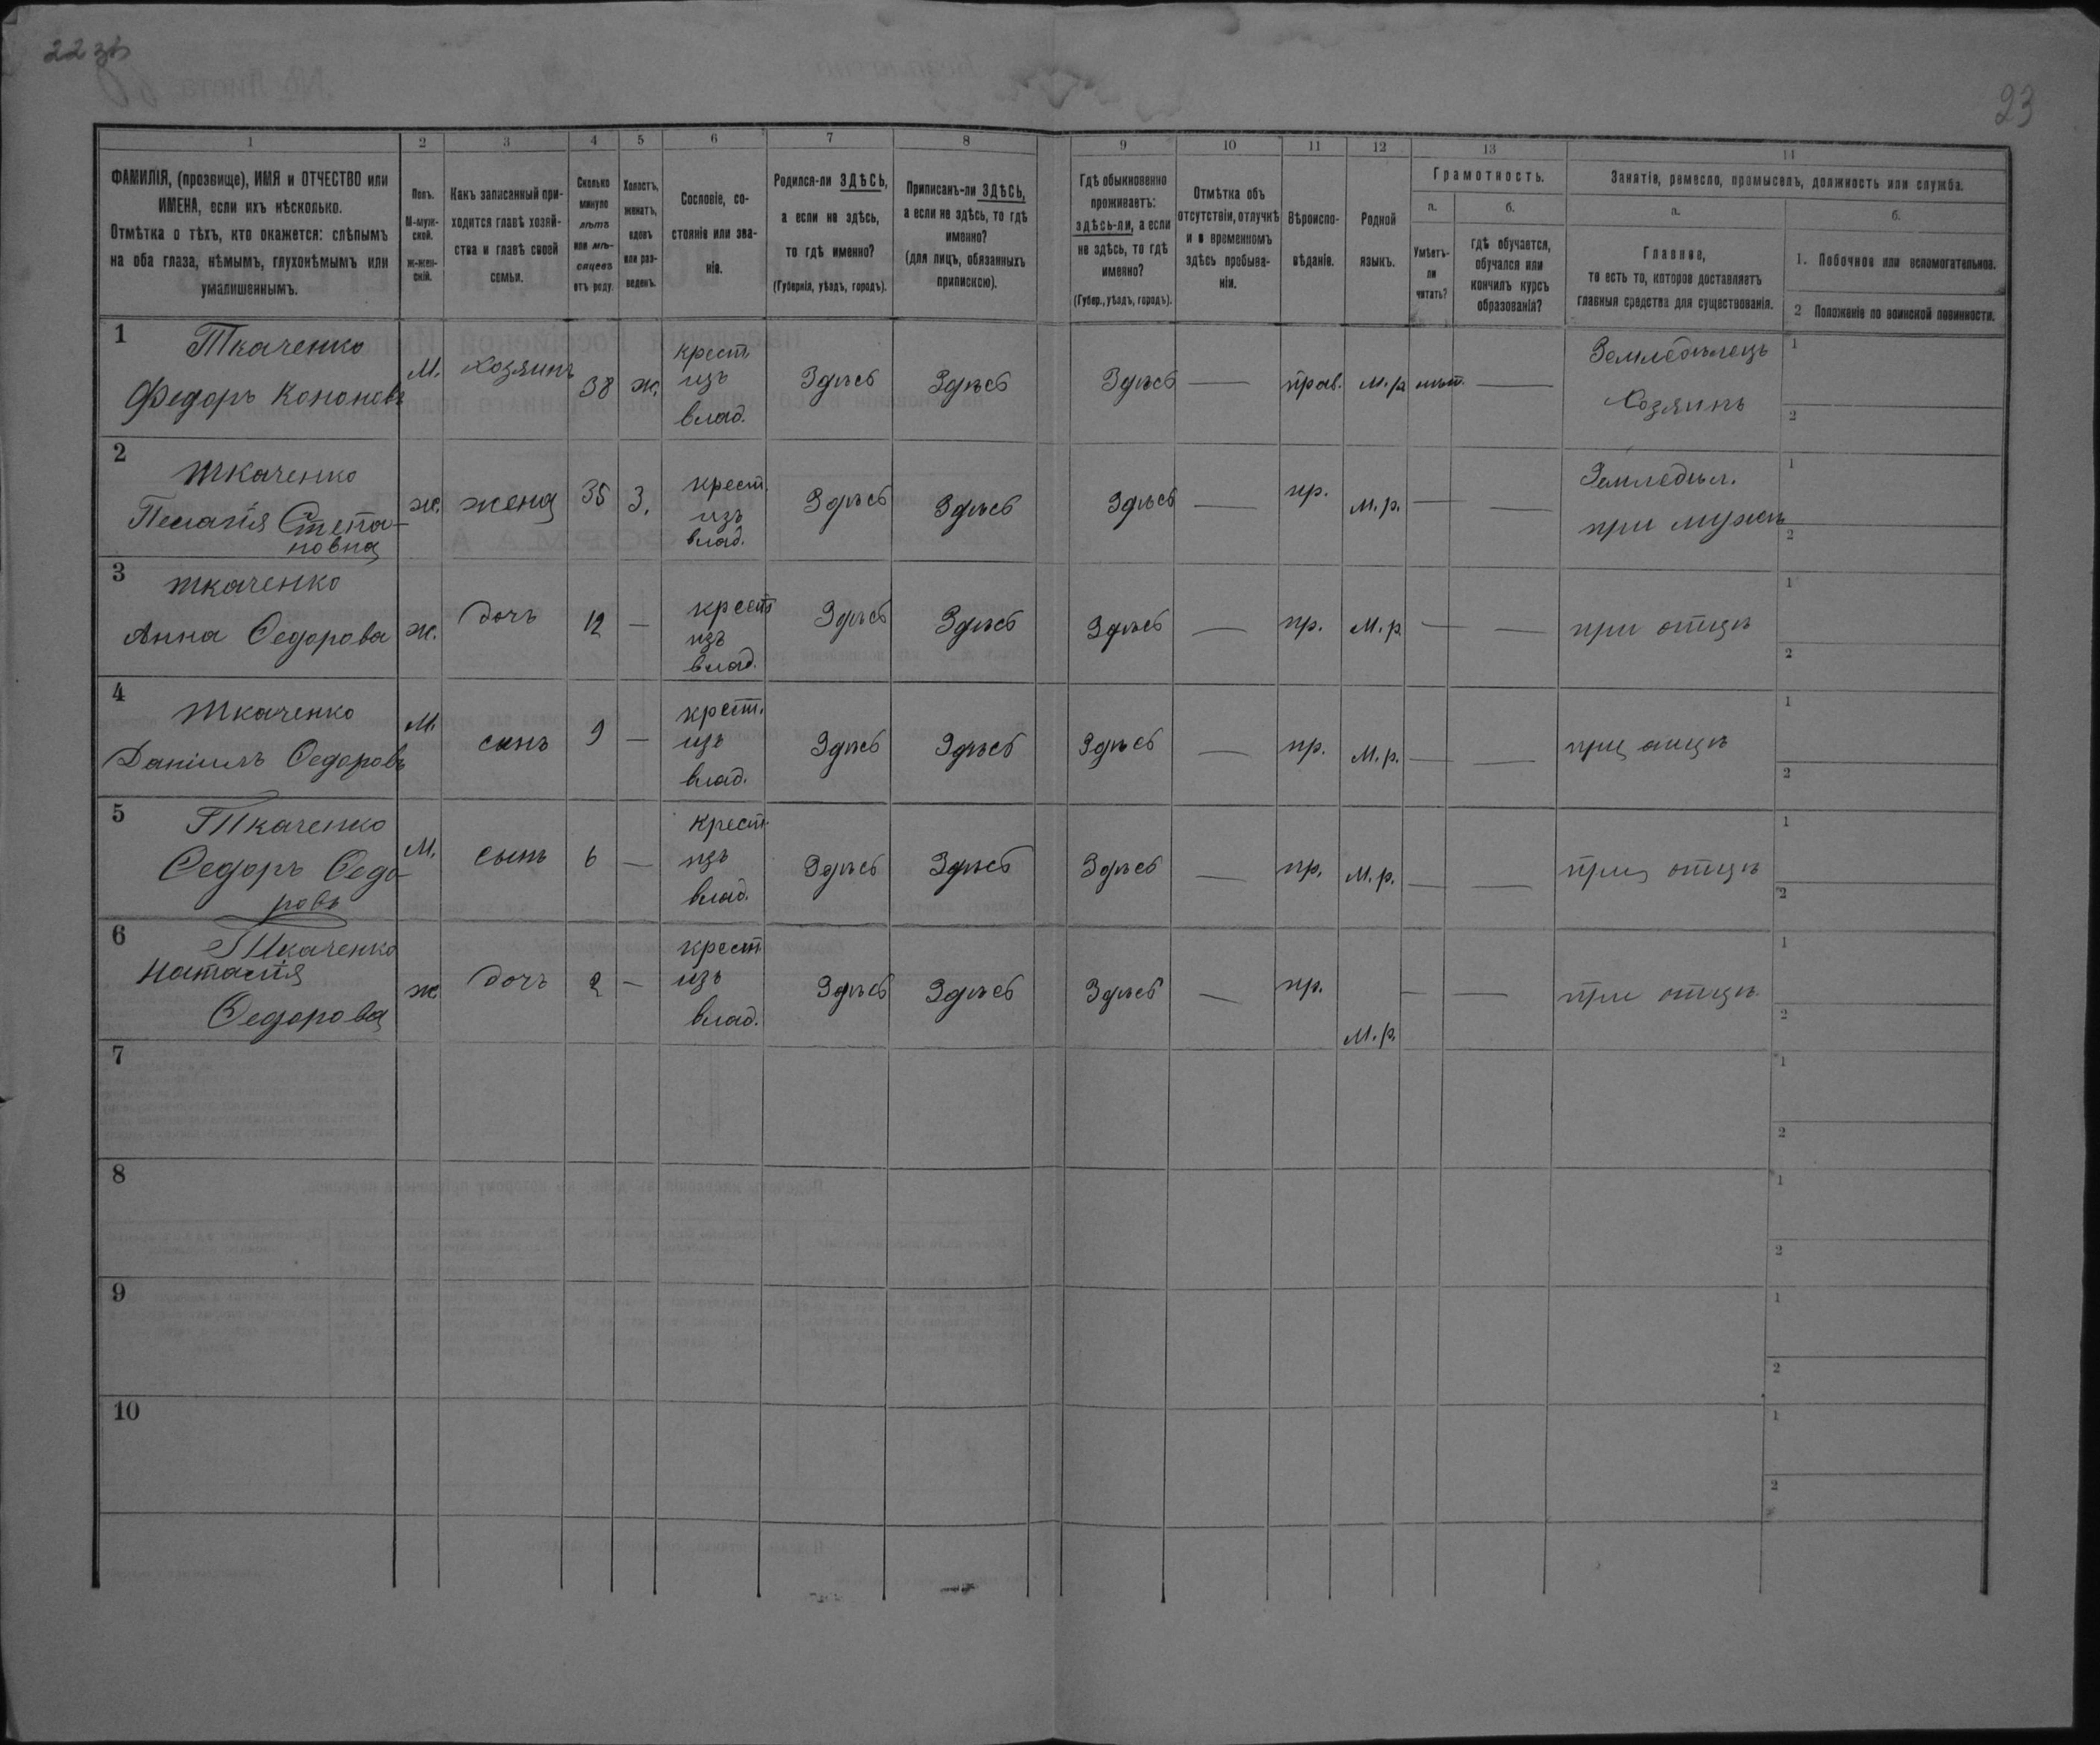 22 зв
23
1
2
3
4
5
6
7
8
9
10
11
12
13
14
ФАМИЛІЯ, (прозвище), ИМЯ и ОТЧЕСТВО или
ИМЕНА, если ихъ нѣсколько.
Отмѣтка о тѣхъ, кто окажется: слѣпымъ
на оба глаза, нѣмымъ, глухонѣмымъ или
умалишеннымъ.
Полъ.
М-муж-
ской.
Ж-жен-
скій.
Какъ записанный при-
ходится главѣ хозяй-
ства и главѣ своей
семьи.
Сколько
минуло
лѣтъ
или мѣ-
сяцевъ
отъ роду.
Холостъ,
женатъ,
вдовъ
или раз-
веденъ.
Сословіе, со-
стояніе или зва-
ніе.
Родился-ли ЗДѢСЬ,
а если не здѣсь,
то гдѣ именно?
(Губернія, уѣздъ, городъ).
Приписанъ-ли ЗДѢСЬ,
а если не здѣсь, то гдѣ
именно?
(для лицъ, обязанныхъ
припискою).
Гдѣ обыкновенно
проживаетъ:
здѣсь-ли, а если
не здѣсь, то гдѣ
именно?
(Губер., уѣздъ, городъ).
Отмѣтка объ
отсутствіи, отлучкѣ
и о временномъ
здѣсь пребыва-
ніи.
Вѣроиспо-
вѣданіе.
Родной
языкъ.
Грамотность.
а.
б.
Умѣетъ-
ли
читать?
гдѣ обучается,
обучался или
кончилъ курсъ
образованія?
Занятіе, ремесло, промыселъ, должность или служба.
а.
б.
Главное,
то есть то, которое доставляетъ
главныя средства для существованія.
1. Побочное или вспомогательное.
2 Положеніе по воинской повинности.
1
Ткаченко
Федоръ Кононовъ
М.
Хозяинъ
38
ж.
крест
изъ
влад.
Здѣсь
Здѣсь
Здѣсь
—
прав.
М.р
нѣт.
—
Земледѣлецъ
Хозяинъ
1
2
2
Ткаченко
Пелагія Степа-
новна
ж.
жена
35
З.
крест.
изъ
влад.
Здѣсь
Здѣсь
Здѣсь
—
пр.
М.р.
—
—
Земледѣл.
при мужѣ
1
2
3
Ткаченко
Анна Ѳедорова
ж.
дочь
12
—
крест
изъ
влад.
Здѣсь
Здѣсь
Здѣсь
—
пр.
М.р
—
—
при отцѣ
1
2
4
Ткаченко
Даніилъ Ѳедоровъ
М.
сынъ
9
—
крест.
изъ
влад.
Здѣсь
Здѣсь
Здѣсь
—
пр.
М.р.
—
—
при отцѣ
1
2
5
Ткаченко
Ѳедоръ Ѳедо-
ровъ
М.
сынъ
6
—
крест.
изъ
влад.
Здѣсь
Здѣсь
Здѣсь
—
пр.
М.р.
—
—
при отцѣ
1
2
6
Ткаченко
Наталія
Ѳедорова
ж
дочь
2
—
крест
изъ
влад.
Здѣсь
Здѣсь
Здѣсь
—
пр.
М.р.
—
—
при отцѣ
1
2
7
1
2
8
1
2
9
1
2
10
1
2